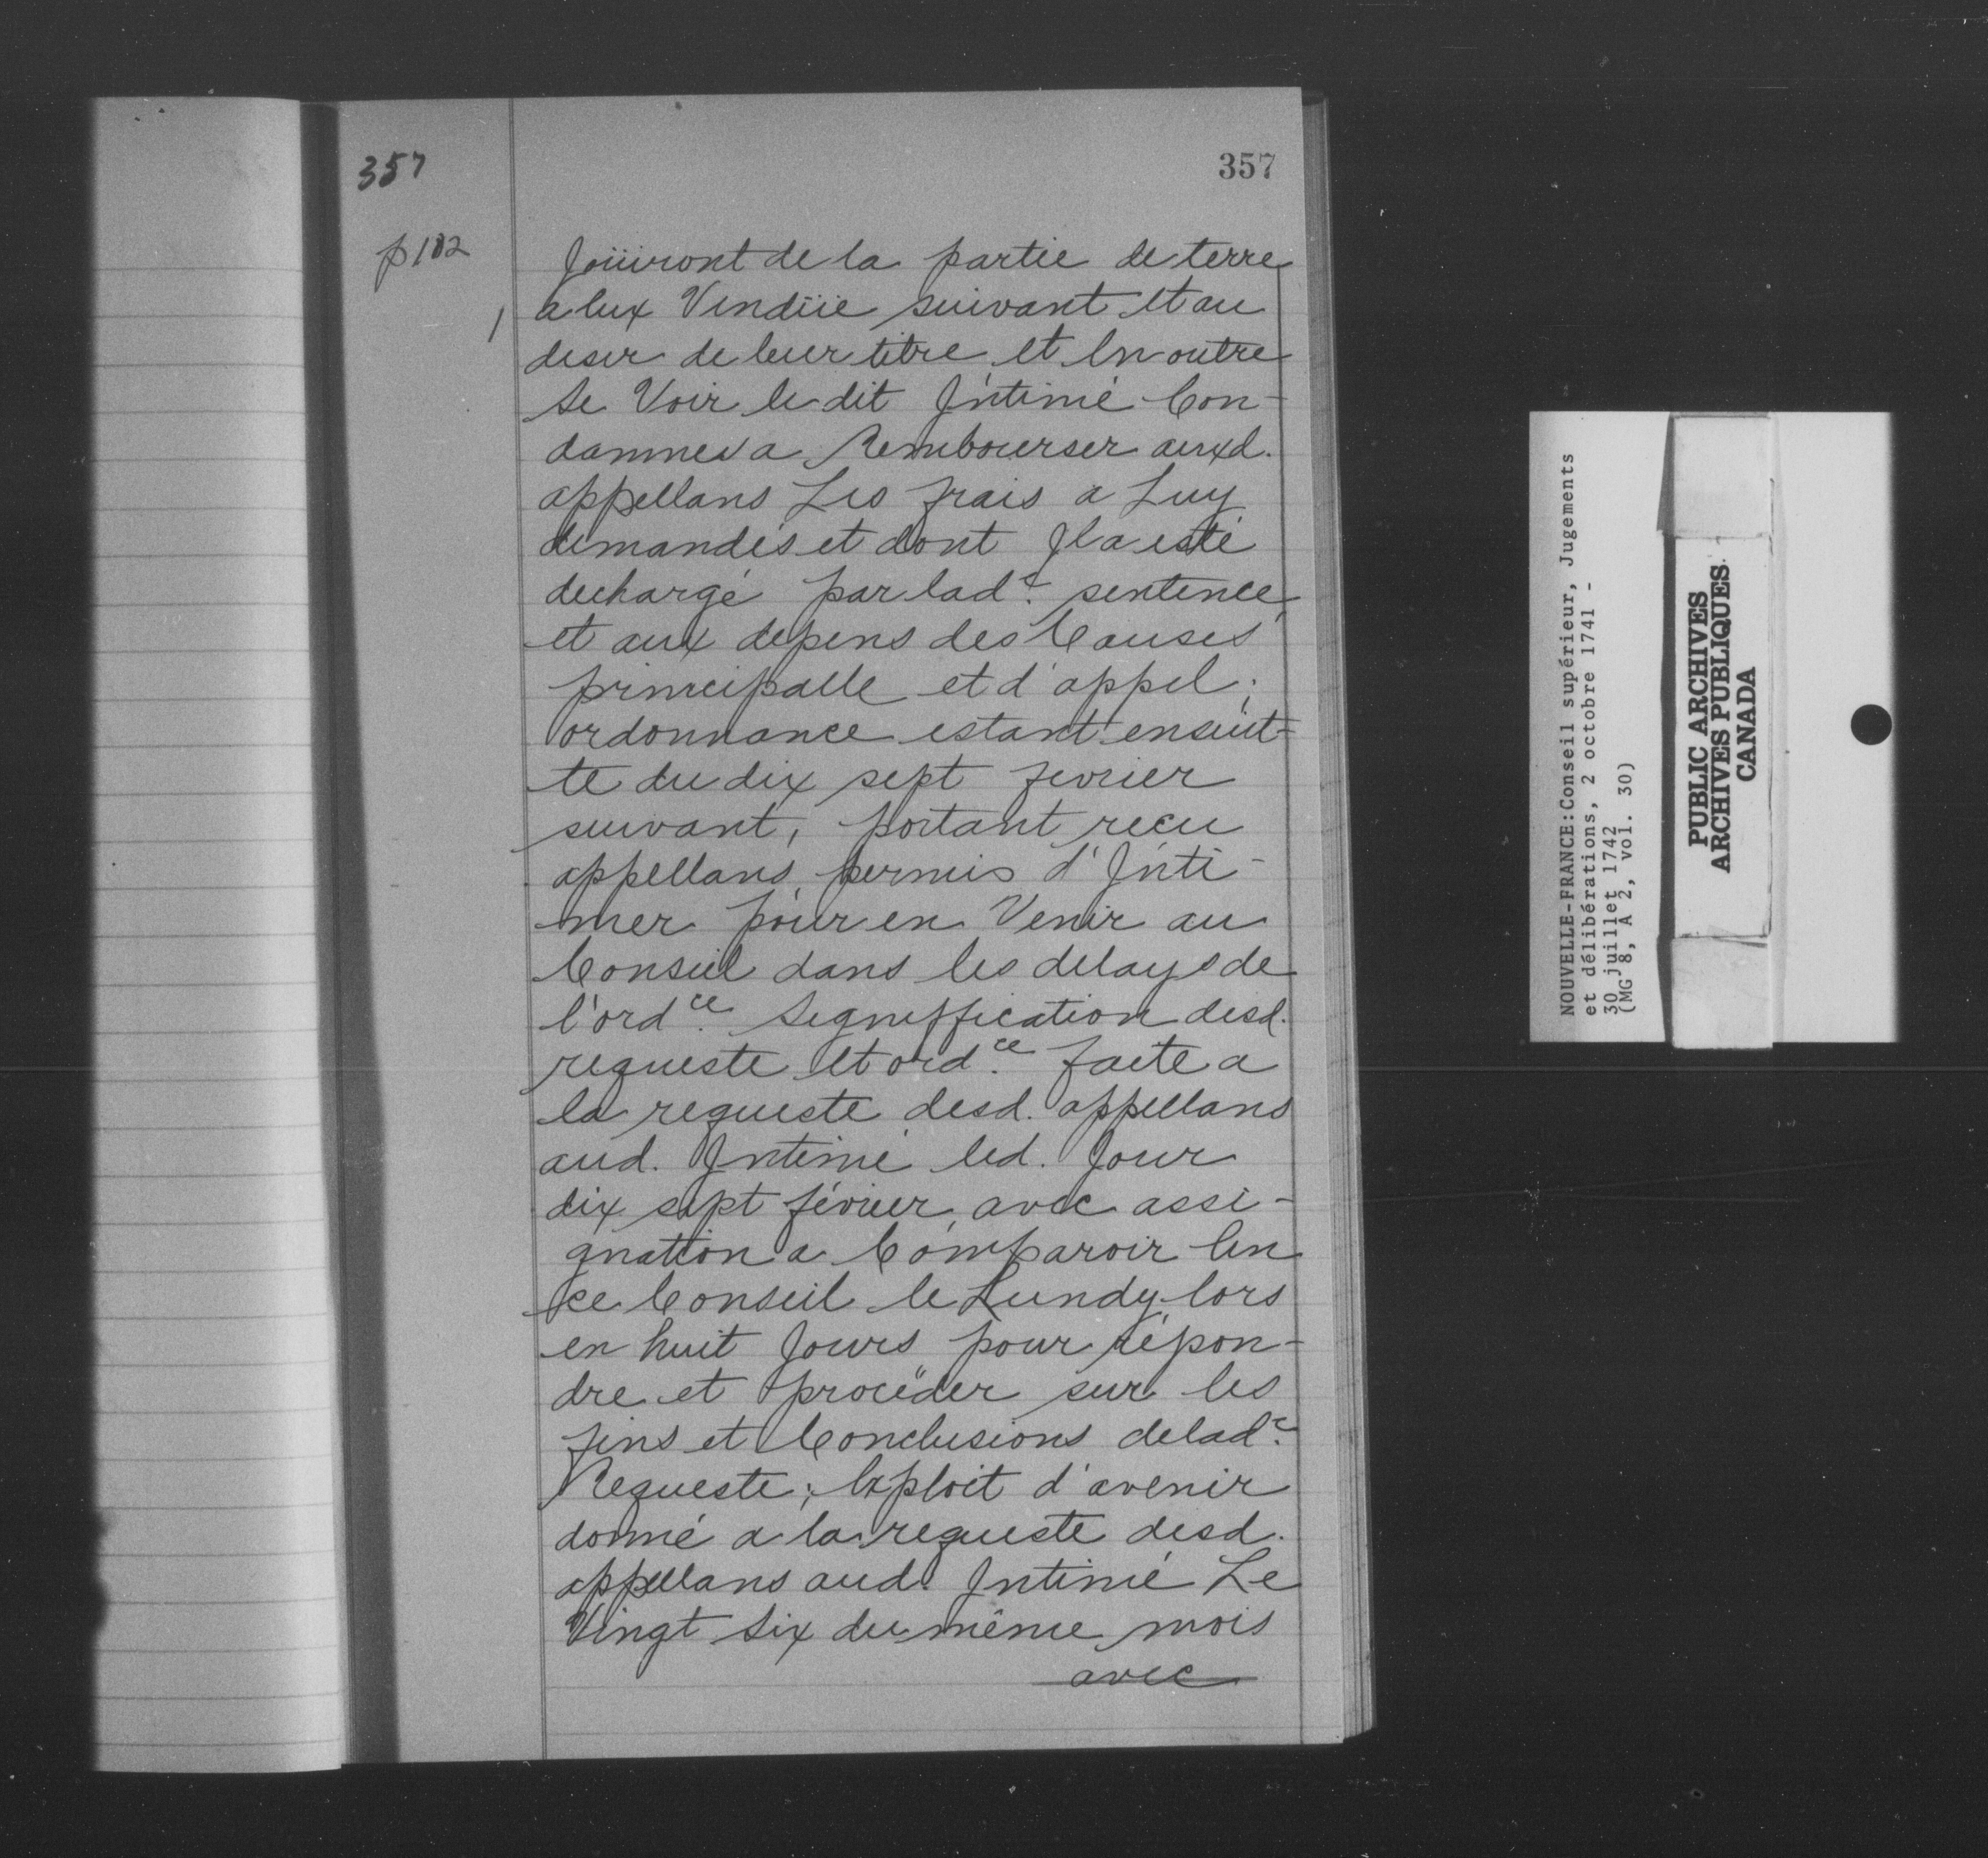 357
357
p 102
Joüiront de la partie de terre
a Eux Vendüe suivant Et au
/
desir de leur titre Et En outre
se Voir le dit Jntimé Con-
damner a Rembourser auxd.
appellans Les frais a Luy
demandés et dont Jl a esté
dechargé par lad.e sentence
et aux depens des Causes
principalle et d'appel;
ordonnance estant ensuit-
te du dix sept fevrier
suivant, portant recu
appellans, permis d'Jnti-
mer pour en Venir au
Conseil dans les delays de
l'ord.ce Signiffication desd.
requeste Et ord.ce faite a
la requeste desd. appellans
aud. Jntimé led. Jour
dix sept février, avec assi-
gnation a Comparoir En
ce Conseil le Lundy lors
en huit Jours pour répon-
dre et procéder sur les
fins et Conclusions de lad.e
Requeste; Exploit d'avenir
donné a la requeste desd.
appellans aud. Jntimé Le
Vingt Six du même mois
avec
NOUVELLE-FRANCE:Conseil supérieur, Jugements
et délibérations, 2 octobre 1741 -
30 juillet 1742
(MG 8, A 2, vol. 30)
PUBLIC ARCHIVES
ARCHIVES PUBLIQUES
CANADA